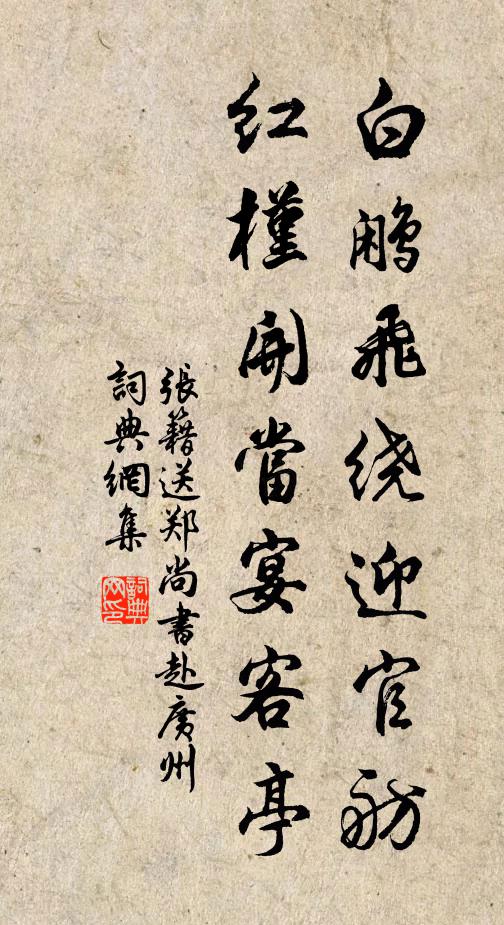 白鹇飞绕迎官舫
红槿開當宴客亭
張籍送郑尚書赴廣州
詞典網集
詞典
网印